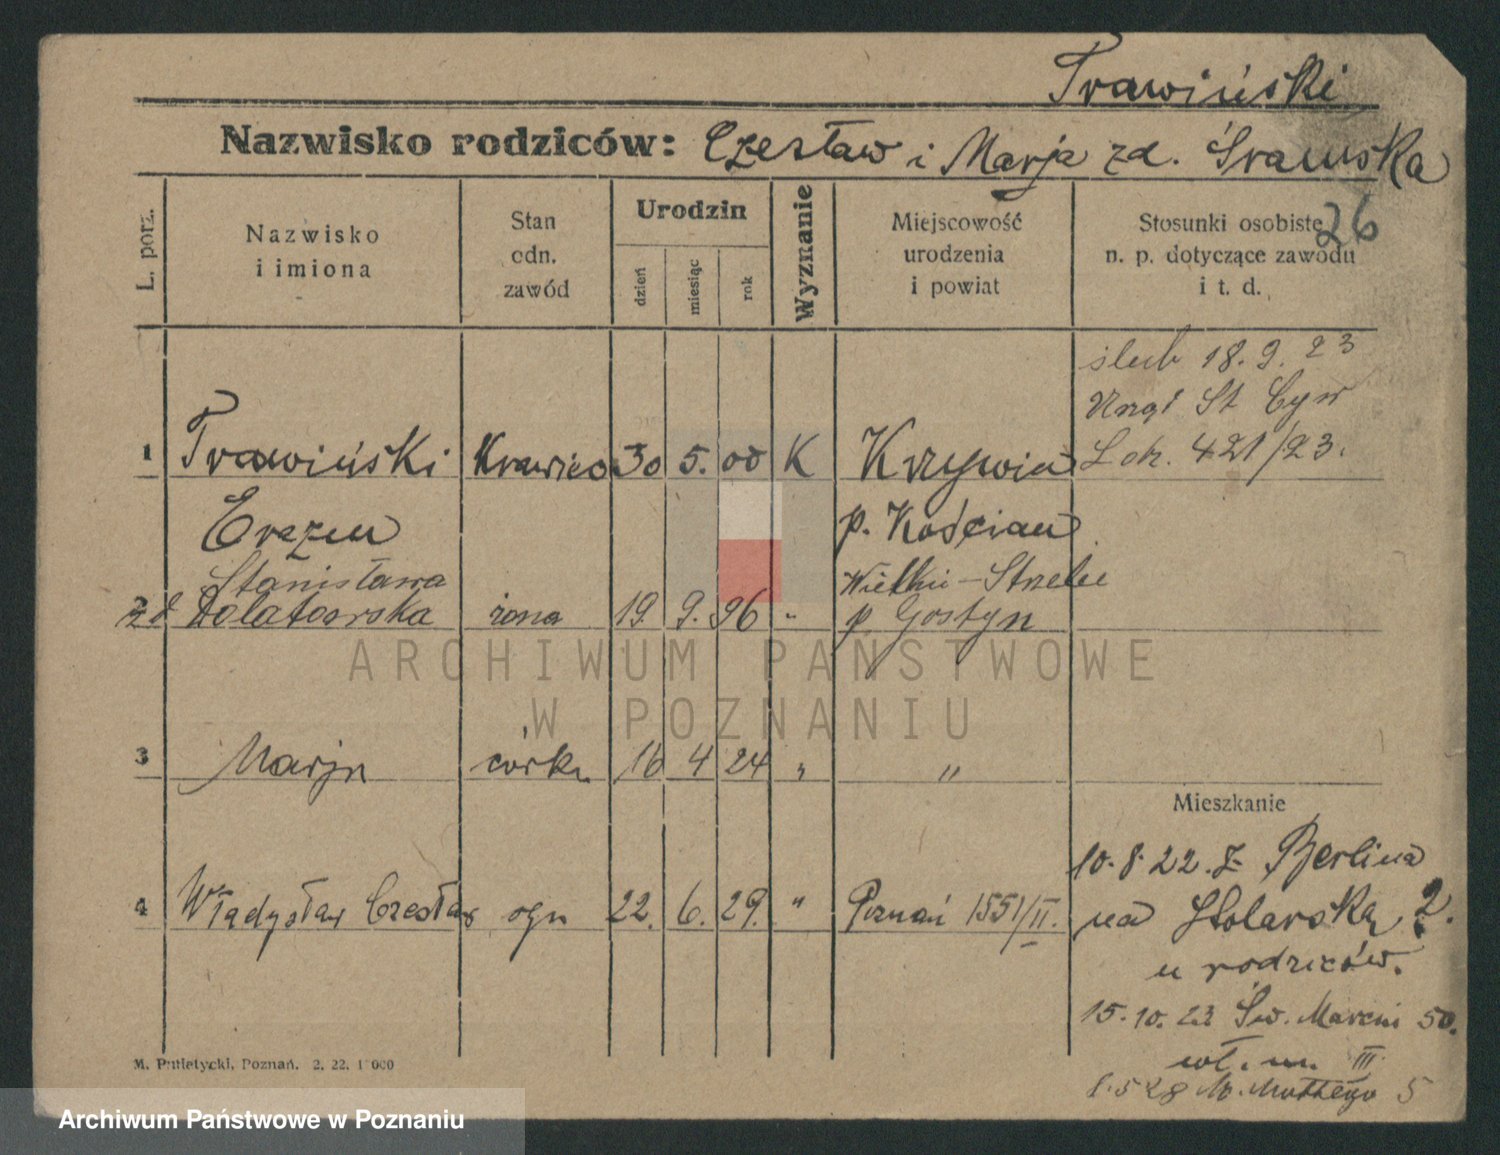 Trawiński
Nazwisko rodziców: Czesław i Marja zd. Śramska
L. porz.
Nazwisko
i imiona
Stan
odn.
zawód
Urodzin
dzień
miesiąc
rok
Wyznanie
Miejscowość
urodzenia
i powiat
Stosunki osobiste
n. p. dotyczące zawodu
i t. d.
26
ślub 18. 9. 23
Urząd St Cyw
L dz. 421/23.
1 Trawiński Krawiec 30 5. 00 K Krzywiń
Erazm p. Kościan
Stanisława Wielkie-Strzelce
2 zd Dolatowska żona 19. 9. 96 " p. Gostyn
3 Marja córka 16 4 24 " "
Mieszkanie
10. 8. 22. z Berlina
4 Władysław Czesław syn 22. 6. 29. " Poznań 1551/II.
na Stolarską 2.
u rodziców.
15. 10. 23 Św. Marcin 50.
wł. m. III
1. 5 28 M. Mottego 5
M. Putiatycki, Poznań. 2. 22. 1 000
ARCHIWUM PAŃSTWOWE
W POZNANIU
Archiwum Państwowe w Poznaniu